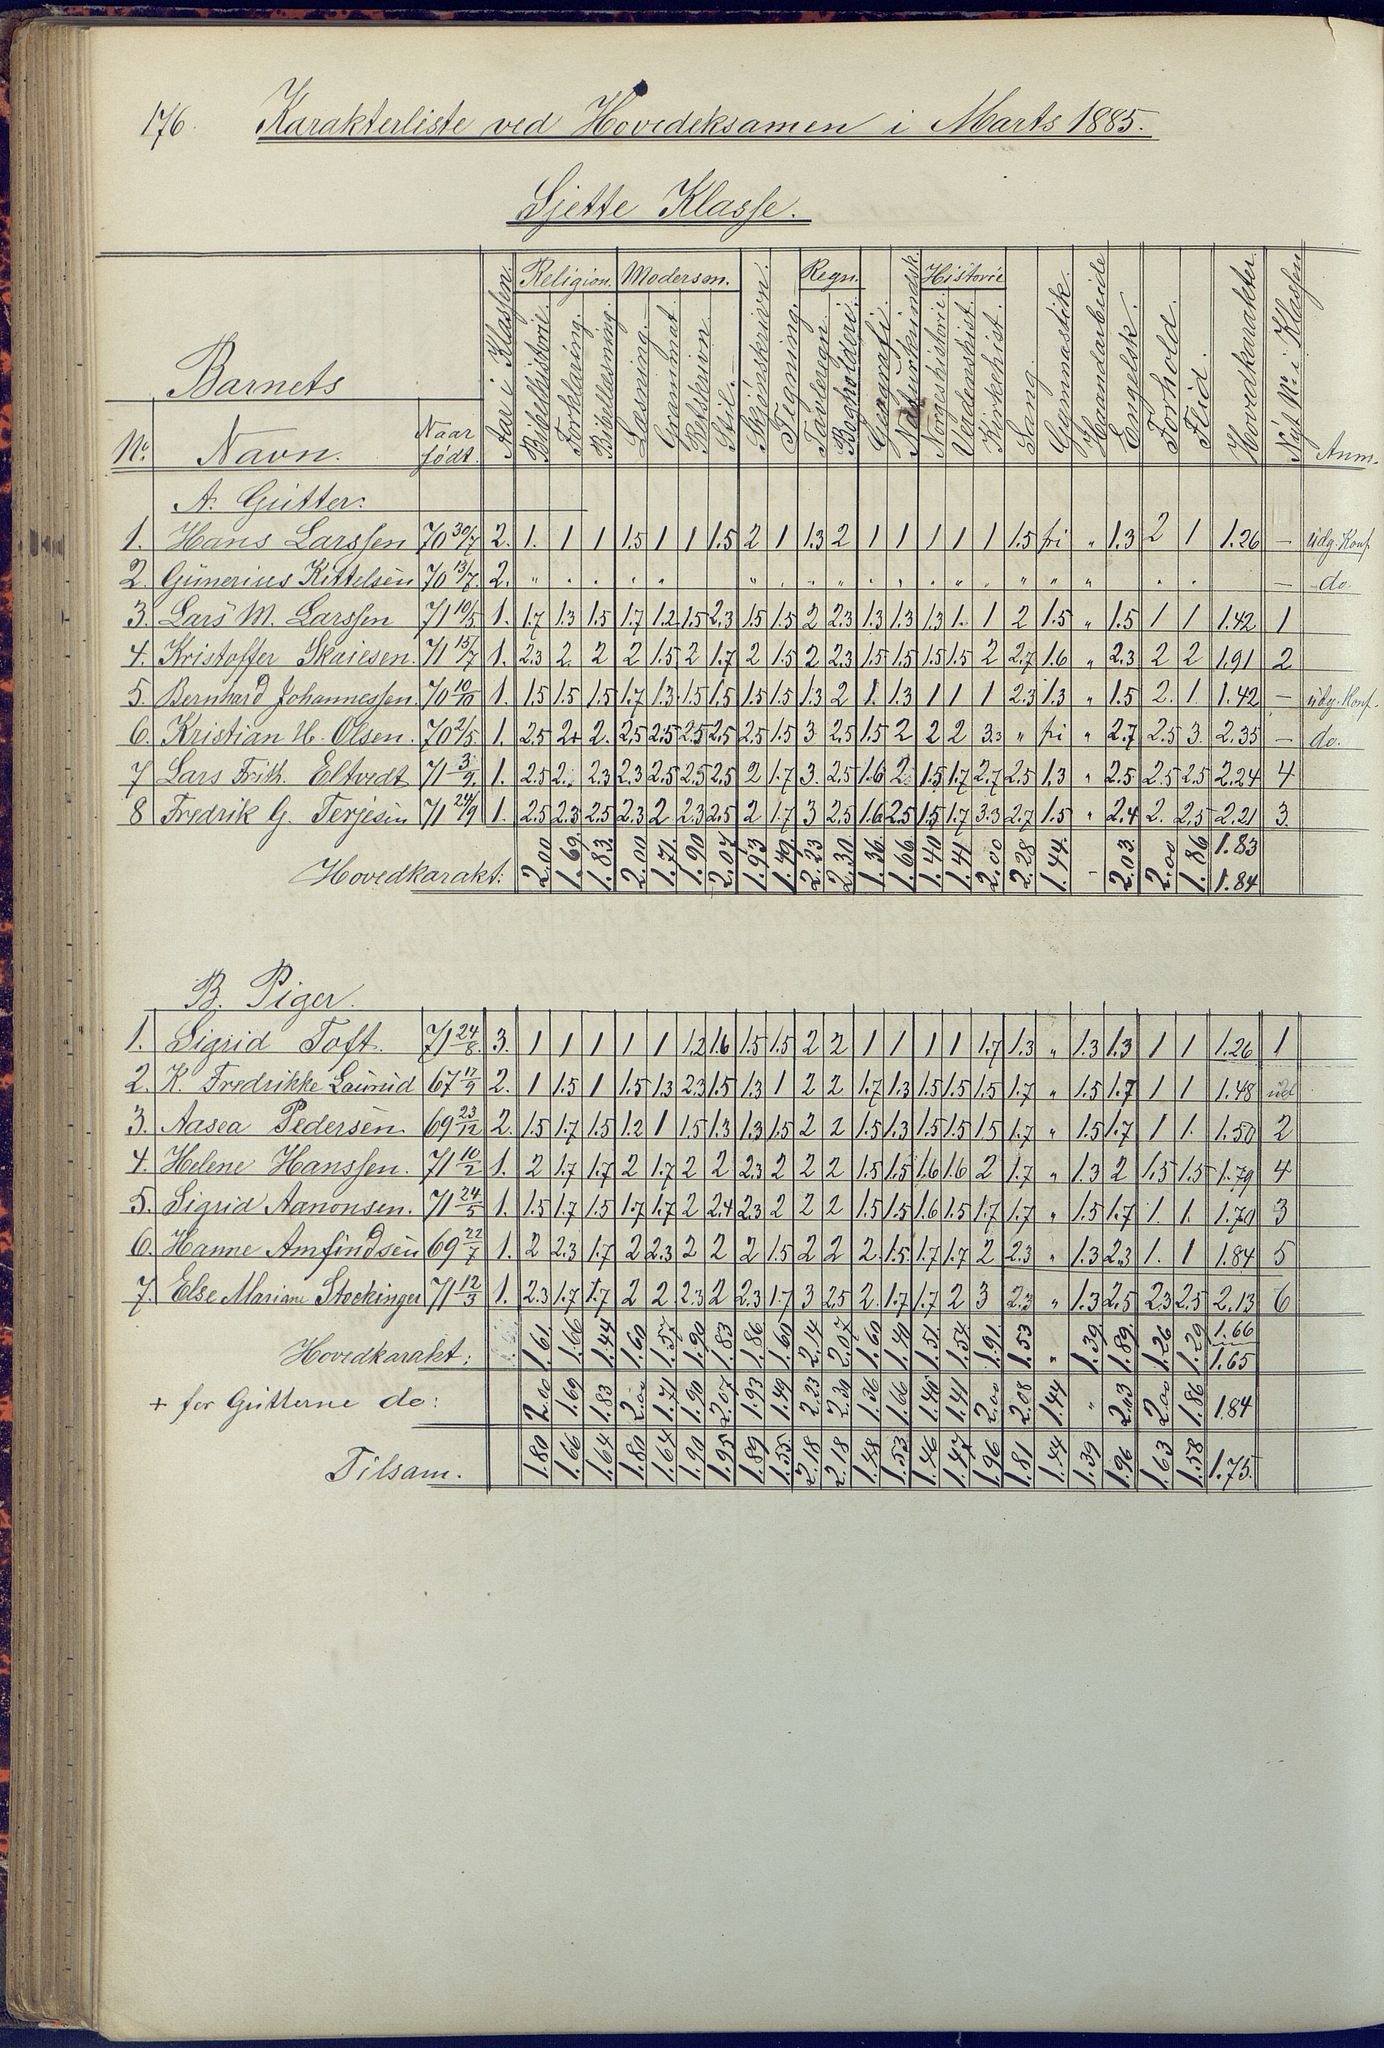 176. Karakterliste ved Hovedeksamen i Marts 1885.
Sjette Klasse.
Barnets
No. Navn. Naar født. Aar i Klassen. Religion. Bibelhistorie. Forklaring. Bibellæsning. Modersm. Læsning. Grammat. Retskrivn. Stil. Skjønskrivn. Tegning. Regn. Tavleregn. Bogholderi. Geografi. Naturkundsk. Historie Norgeshistorie Verdenshist. Kirkehist. Sang. Gymnastik. Haandarbeide Engelsk. Forhold. Flid. Hovedkarakter. Nyt No. i Klassen Anm.
A. Gutter.
1. Hans Larssen 70 30/7 2. 1. 1 1 1.5 1 1 1.5 2 1 1.3 2 1 1 1 1 1 1.5 fri " 1.3 2 1 1.26 — udg. Konf.
2. Gunerius Kittelsen 70 13/7. 2. " " " " " " " " " " " " " " — do
3. Lars M. Larssen 71 10/5 1. 1.7 1.3 1.5 1.7 1.2 1.5 2.3 1.5 1.5 2 2.3 1.3 1.3 1.3 1. 1 2 1.5 " 1.5 1 1 1.42 1
4. Kristoffer Skaiesen. 71 15/7 1. 2.3 2. 2 2 1.5 2 1.7 2 1.5 2 2.3 1.5 1.5 1.5 1.5 2 2.7 1.6 " 2.3 2 2 1.91 2
5. Bernhard Johannessen 70 10/10 1. 1.5 1.5 1.5 1.7 1.3 1.5 1.5 1.5 1.5 1.3 2 1. 1.3 1 1 1 2.3 1.3 " 1.5 2. 1. 1.42 — udg. Konf.
6. Kristian H. Olsen. 70 2/5 1. 2.5 2+ 2. 2.5 2.5 2.5 2.5 2.5 1.5 3 2.5 1.5 2 2 2 3.3 " fri " 2.7 2.5 3. 2.35 — do.
7 Lars Frith. Eltvedt 71 3/2. 1. 2.5 2. 2.3 2.3 2.5 2.5 2.5 2 1.7 3. 2.5 1.6 2 1.5 1.7 2.7 2.5 1.3 " 2.5 2.5 2.5 2.24 4
8 Fredrik G. Terjesen 71 24/9 1. 2.5 2.3 2.5 2.3 2 2.3 2.5 2 1.7 3 2.5 1.6 2.5 1.5 1.7 3.3 2.7 1.5 " 2.4 2. 2.5 2.21 3.
Hovedkarakt: 2.00 1.69 1.83 2.00 1.71 1.90 2.07 1.93 1.49 2.23 2.30 1.36 1.66 1.40 1.41 2.00 2.28 1.44 - 2.03 2.00 1.86 1.83 1.84
B. Piger.
1. Sigrid Toft. 71 24/8. 3. 1 1 1 1 1 1.2 1.6 1.5 1.5 2 2 1 1 1 1 1.7 1.3 " 1.3 1.3 1 1 1.26 1
2. K. Fredrikke Laurud 67 17/9 2. 1 1.5 1 1.5 1.3 2.3 1.5 1.3 1 2 2 1.7 1.3 1.5 1.5 1.5 1.7 " 1.5 1.7 1 1 1.48 ud
3. Aasea Pedersen. 69 23/12 2. 1.5 1.7 1.5 1.2 1 1.5 1.3 1.3 1.5 2 2 1.5 1.3 1.5 1.5 1.5 1.7 " 1.5 1.7 1 1. 1.50 2
4. Helene Hanssen. 71 10/2 1. 2 1.7 1.7 2 1.7 2 2 2.3 2 2 2 1.5 1.5 1.6 1.6 2 1.7 " 1.3 2 1.5 1.5 1.79 4
5. Sigrid Aanonsen. 71 24/5 1. 1.5 1.7 1.5 1.7 1.7 2 2.4 2.3 2 2 2 1.5 1.5 1.6 1.5 1.7 1.7 " 1.5 1.7 1. 1. 1.70 3
6. Hanne Amfindsen 69 22/7 1. 2 2.3 1.7 2 2.3 2 2 2 1.5 2 2 2. 1.5 1.7 1.7 2 2.3 " 1.3 2.3 1. 1 1.84 5
7. Else Mariane Stockinger 71 12/3 1. 2.3 1.7 1.7 2 2 2.3 2 2.3 1.7 3 2.5 2. 1.7 1.7 2 3 2.3 " 1.3 2.5 2.3 2.5 2.13 6
Hovedkarakt: 1.61 1.66 1.44 1.60 1.57 1.90 1.83 1.86 1.60 2.14 2.07 1.60 1.40 1.51 1.54 1.91 1.53 " 1.39 1.89 1.26 1.29 1.66 1.65
+ for Gutterne do: 2.00 1.69 1.83 2.00 1.71 1.90 2.07 1.93 1.49 2.23 2.30 1.36 1.66 1.40 1.41 2.00 2.08 1.44 " 2.03 2.00 1.86 1.84
Tilsam. 1.80 1.66 1.64 1.80 1.64 1.90 1.95 1.89 1.55 2.18 2.18 1.48 1.53 1.46 1.47 1.96 1.81 1.44 1.39 1.96 1.63 1.58 1.75.